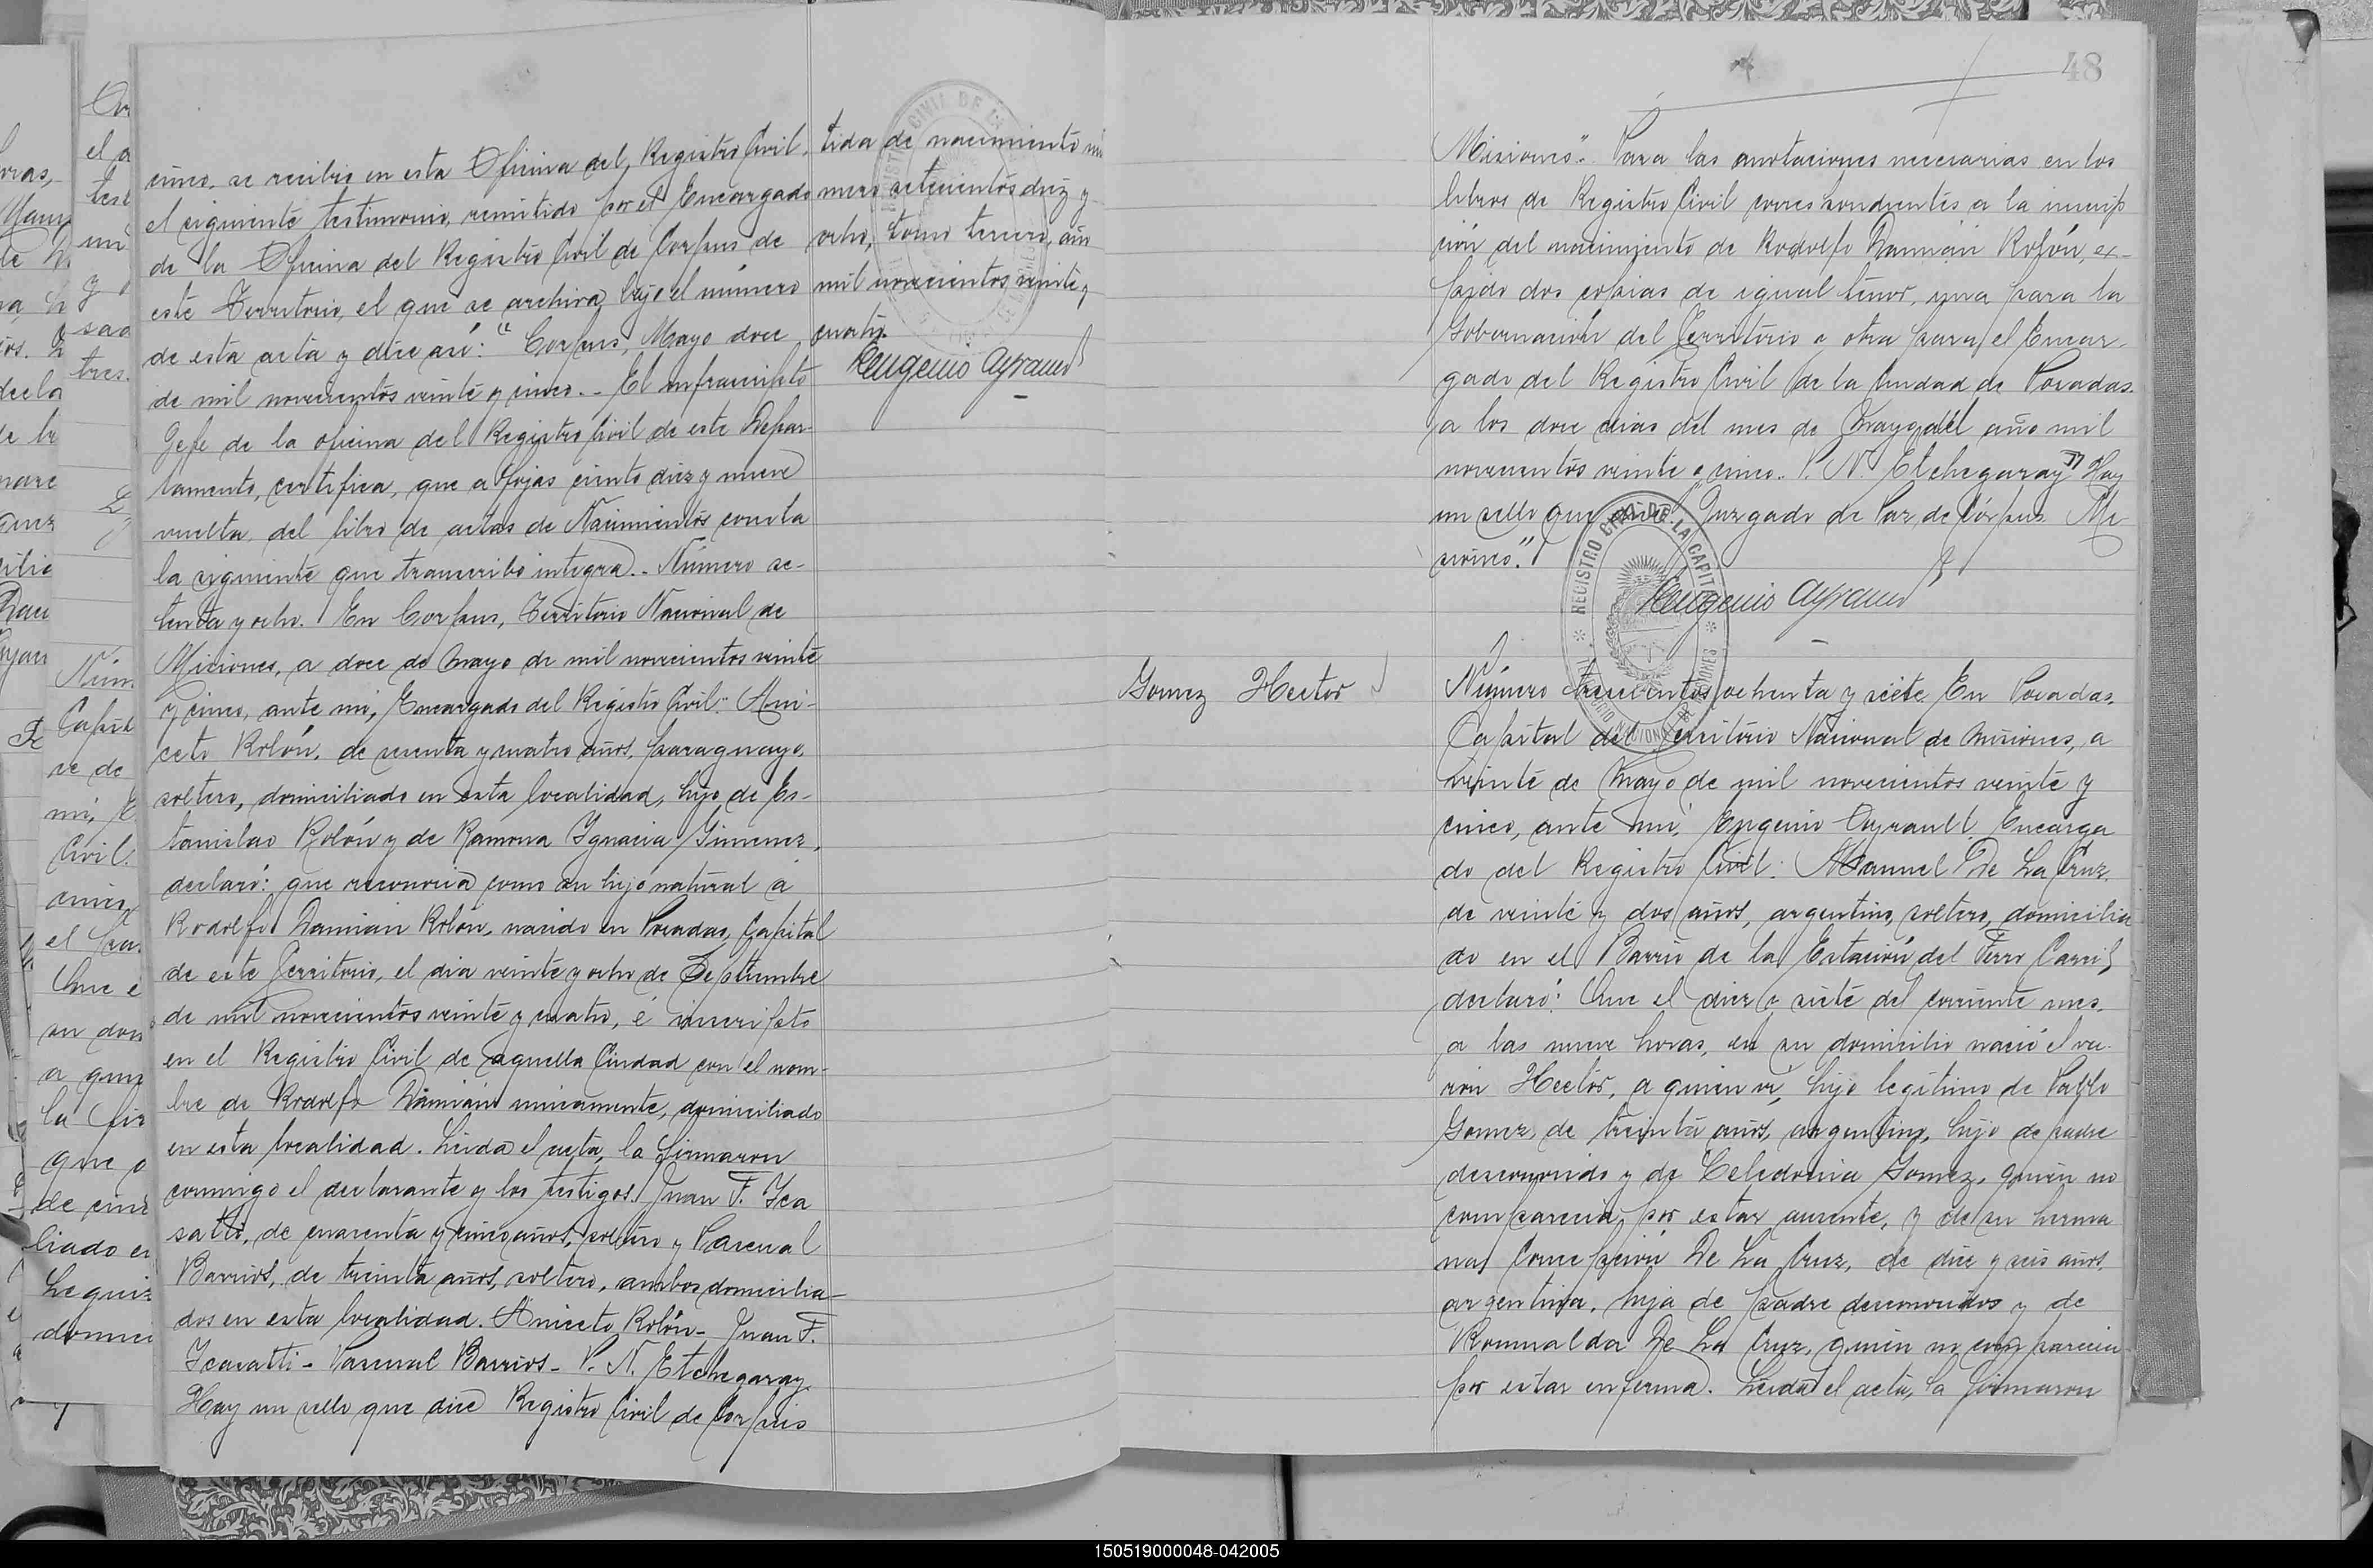 cinco, se recibió en esta Oficina del Registro Civil,
el siguiente testimonio, remitido por el Encargado
de la Oficina del Registro Civil de Corpus de
este Territorio, el que se archiva bajo el número
de esta acta y dice así: "Corpus, Mayo doce
de mil novecientos veinte y cinco.- El infrascripto
Jefe de la oficina del Registro Civil de este Depar-
tamento, certifica, que a fojas ciento diez y nueve
vuelta del libro de actas de Nacimientos consta
la siguiente que transcribo integra.- Número se-
tenta y ocho. En Corpus, Territorio Nacional de
Misiones, a doce de Mayo de mil novecientos veinte
y cinco, ante mi, Encargado del Registro Civil: Ani-
ceto Rolón, de y cuatro años, paraguayo,
soltero, domiciliado en esta localidad, hijo de Es-
tanislao Rolón y de Ramona Ygnacia Gimenez,
declaró: que reconocia como su hijo natural a
Rodolfo Damián Rolón, nacido en Posadas, Capital
de este Territorio, el dia veinte y ocho de Septiembre
de mil novecientos veinte y cuatro, é inscripto
en el Registro Civil de aquella Ciudad con el nom-
bre de Rodolfo Damián unicamente, domiciliado
en esta localidad. Leida el acta, la firmaron
conmigo el declarante y los testigos Juan F. Ica
satti, de cuarenta y cinco años, soltero y Pascual
Barrios, de treinta años, soltero, ambos domicilia-
dos en esta localidad. Aniceto Rolón- Juan F.
Icasatti- Pascual Barrios- P. N. Etchegaray.
Hay un sello que dice Registro Civil de Corpus
tida de nacimiento nú
mero setecientos diez y
ocho, tomo tercero, año
mil novecientos veinte y
cuatro.
Eugenio Ayrault
48
Misiones". Para las anotaciones necesarias en los
libros de Registro Civil correspondientes a la inscrip
ción del nacimiento de Rodolfo Damián Rolón, ex-
pido dos copias de igual tenor, una para la
Gobernación del Territorio y otra para el Encar-
gado del Registro Civil de la Ciudad de Posadas.
a los doce dias del mes de Mayo del año mil
novecientos veinte y cinco. P. N. Etchegaray" Hay
un sello que dice "Juzgado de Paz de Córpus Mi
siones."
REGISTRO CIVIL DE LA CAPITAL
Eugenio Ayrault
Gomez Hector
Número trescientos ochenta y siete. En Posadas,
Capital del Territorio Nacional de Misiones, a
veinte de Mayo de mil novecientos veinte y
cinco, ante mi, Eugenio Ayrault, Encarga
do del Registro Civil: Manuel De La Cruz
de veinte y dos años, argentino, soltero, domicilia
do en el Barrio de la Estación del Ferro Carril,
declaró: Que el diez y siete del corriente mes,
a las nueve horas, en su domicilio nació el va-
rón Hector, a quien ví, hijo legítimo de Pablo
Gomez, de treinta años, argentino, hijo de padre
desconocido y de Celedonia Gomez, quien no
comparecia por estar ausente, y de su herma
na Concepción De La Cruz, de diez y seis años,
argentina, hija de padre desconocidos y de
Romualda De La Cruz, quien no comparecia
por estar enferma. Leida el acta, la firmaron
150519000048-042005